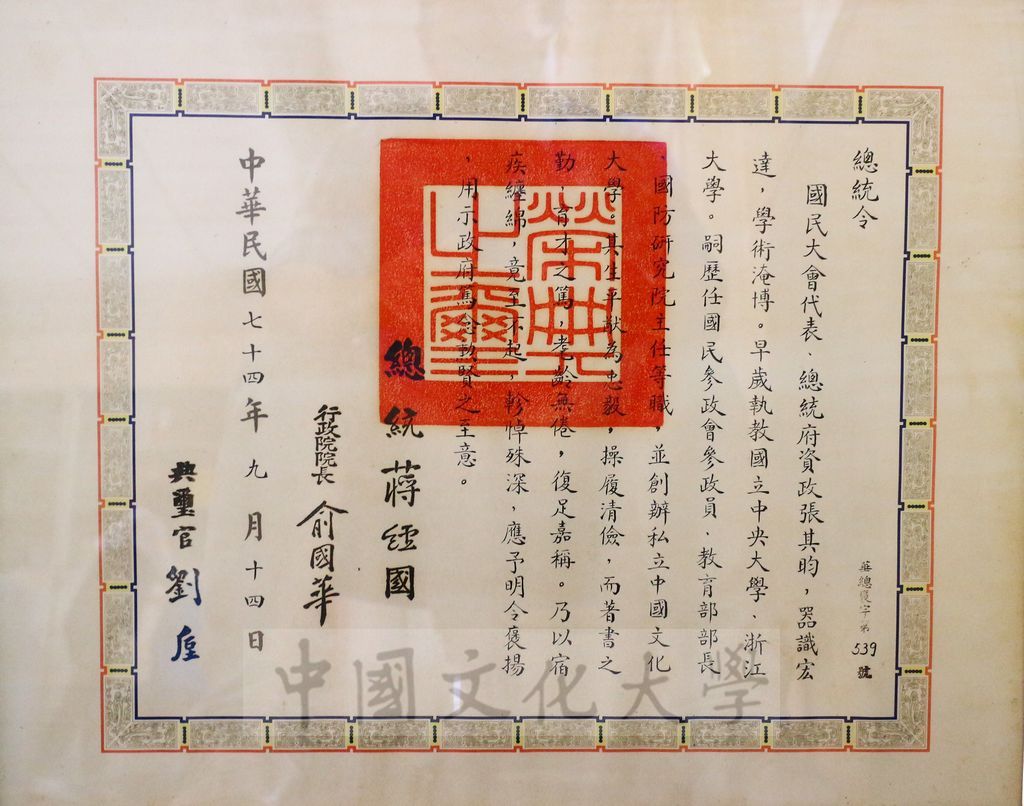 總統令
國民大會代表、總統府資政張其昀，器識宏
達，學術淹博。早歲執教國立中央大學、浙江
大學。嗣歷任國民參政會參政員、教育部部長
、國防研究院主任等職，並創辦私立中國文化
大學。其生平獻為忠毅，操履清儉，而著書之
勤，育才之篤，耄齡無倦，復足嘉稱。乃以宿
疾纏綿，竟至不起，軫悼殊深，應予明令褒揚
，用示政府篤念勳賢之至意。
總統 蔣經國
行政院院長 俞國華
中華民國七十四年九月十四日
典璽官 劉垕
華總復字第539號
榮典之璽
中國文化大學